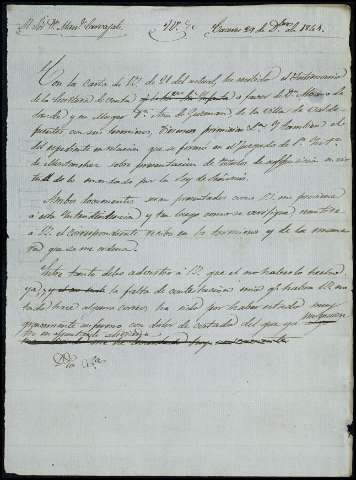 M. Sor Dn Manl Carvajal.
Caceres 29 de Dbre de 1844.
Con la carta de V. de 21 del actual, he recibido el Testimonio
de la Escritura de venta a favor de Dn
y su Muger Da Ana de Guzman de la villa de Valde-
fuentes con sus terminos, y tambien el
del espediente en relacion que se formó en el Juzgado de 1a Inst.a
de Montanchez sobre presentacion de titulos de en vir-
tud de lo mandado por la Ley de Señorios.
Ambos documentos seran presentados como V. me previene
á esta Intendencia, y tan luego como se verifique remitiré
á V. el correspondiente recibo en los terminos y de la mane-
ra que se me ordena.
Entre tanto debo advertir á V. que el no haberlo hecho
ya, y la falta de contestacion mia que habrá V. no-
tado hace algunos correos, ha sido por haber estado muy
gravemente enfermo con dolor de costado del que ya
me encuentro aliviado